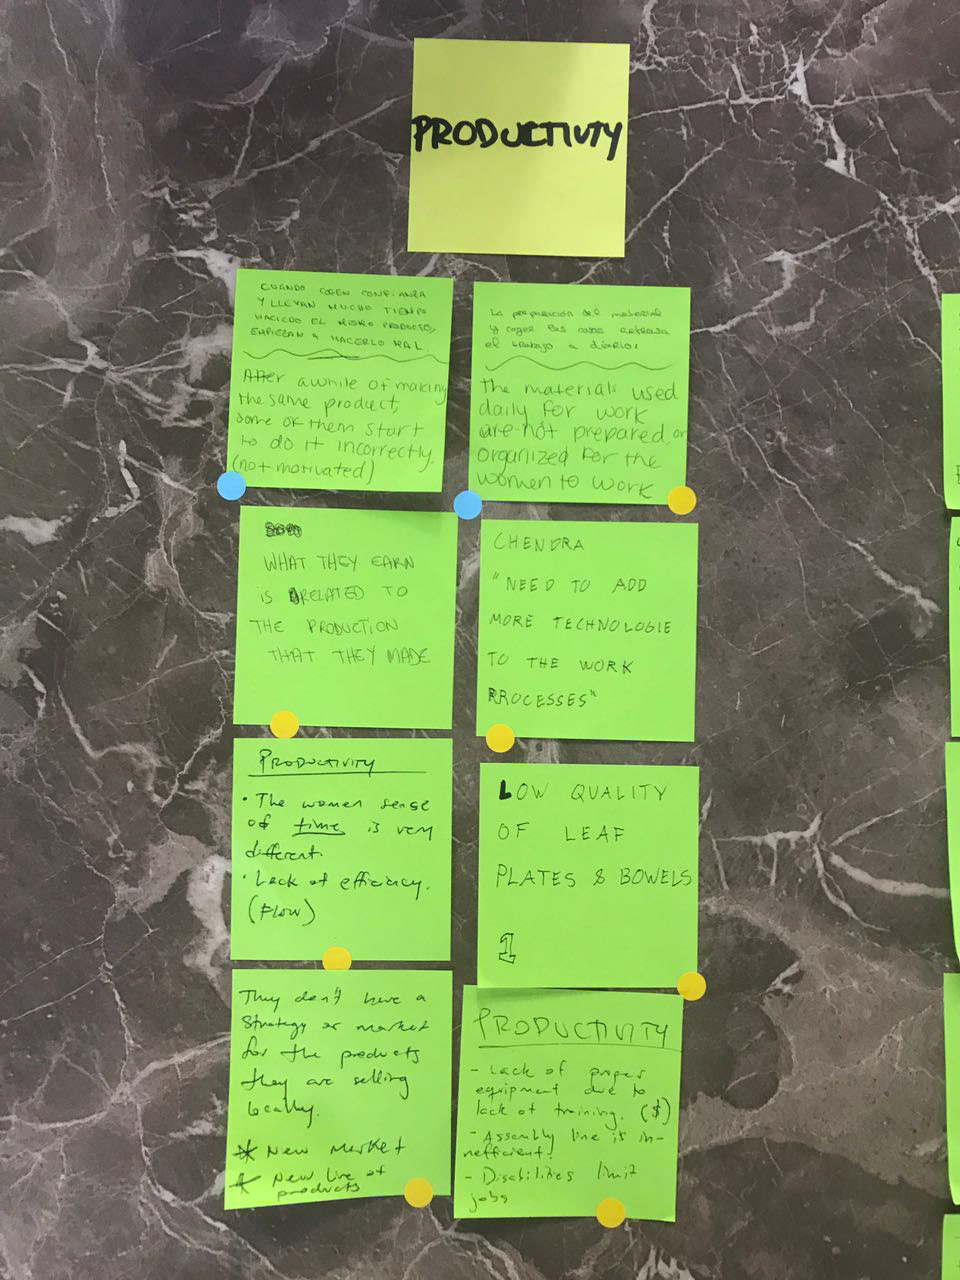 PRODUCTIVITY
CUANDO COGEN CONFIANZA
Y LLEVAN MUCHO TIEMPO
HACIEDO EL MISMO PRODUCTO,
EMPIEZAN A HACERLO MAL.
After awhile of making
the same product,
some of them start
to do it incorrectly.
(not motivated)
La preparación del material
y coger las cosas retrasa
el trabajo a diario.
The materials used
daily for work
are not prepared, or
organized for the
women to work
WHAT THEY EARN
IS RELATED TO
THE PRODUCTION
THAT THEY MADE
CHENDRA
"NEED TO ADD
MORE TECHNOLOGIE
TO THE WORK
PROCESSES"
PRODUCTIVITY
· The women sense
of time is very
different.
· Lack of efficiency.
(Flow)
LOW QUALITY
OF LEAF
PLATES & BOWELS
1
They don't have a
strategy or market
for the products
they are selling
locally.
* New Market
* New line of
products
PRODUCTIVITY
- Lack of proper
equipment due to
lack of training. ($)
- Assembly line is in-
nefficient!
- Disabilities limit
jobs